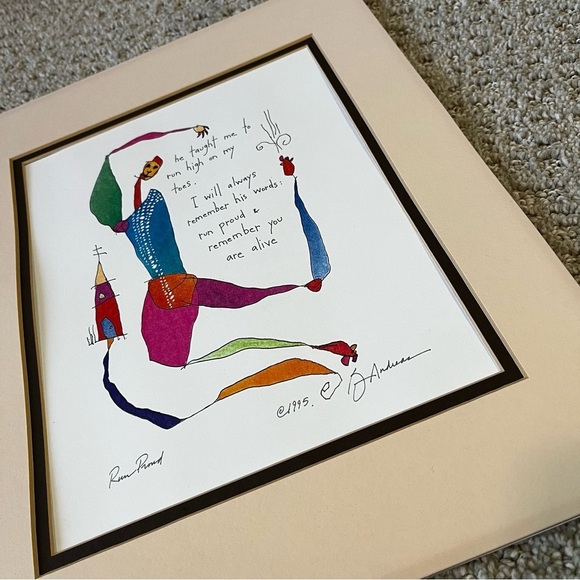 he taught me to
run high on my
toes.
I will always
remember his words:
run proud &
remember you
are alive
©1995.
Andreas
Run Proud